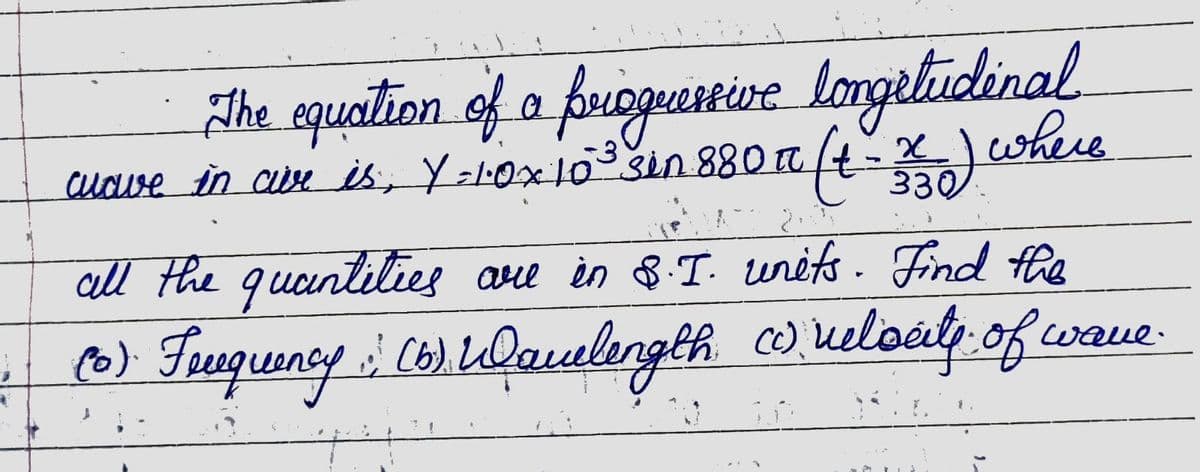 The equation of a progressive longitudinal
wave in air is, Y=1.0×10⁻³ sin 880 π (t - x/330) where
all the quantities are in S.I. units. Find the
(a) Frequency ; (b) Wavelength (c) velocity of wave.